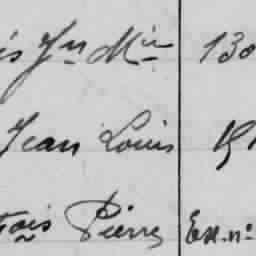 és Jn Mie 130
Jean Louis 151
çois Pierre Ex.no